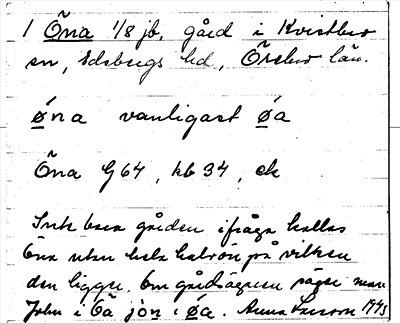 1 Öna 1/8 jb, gård i Kvistbro
sn, Edsbergs hd, Örebro län.
øna vanligast øa
Öna G64, kb 34, ek
Inte bara gården ifråga kallas
Öna utan hela halvön på vilken
den ligger. Om gårdsägaren säger man
John i Öa jòn i øa. Anna Larsson 1973